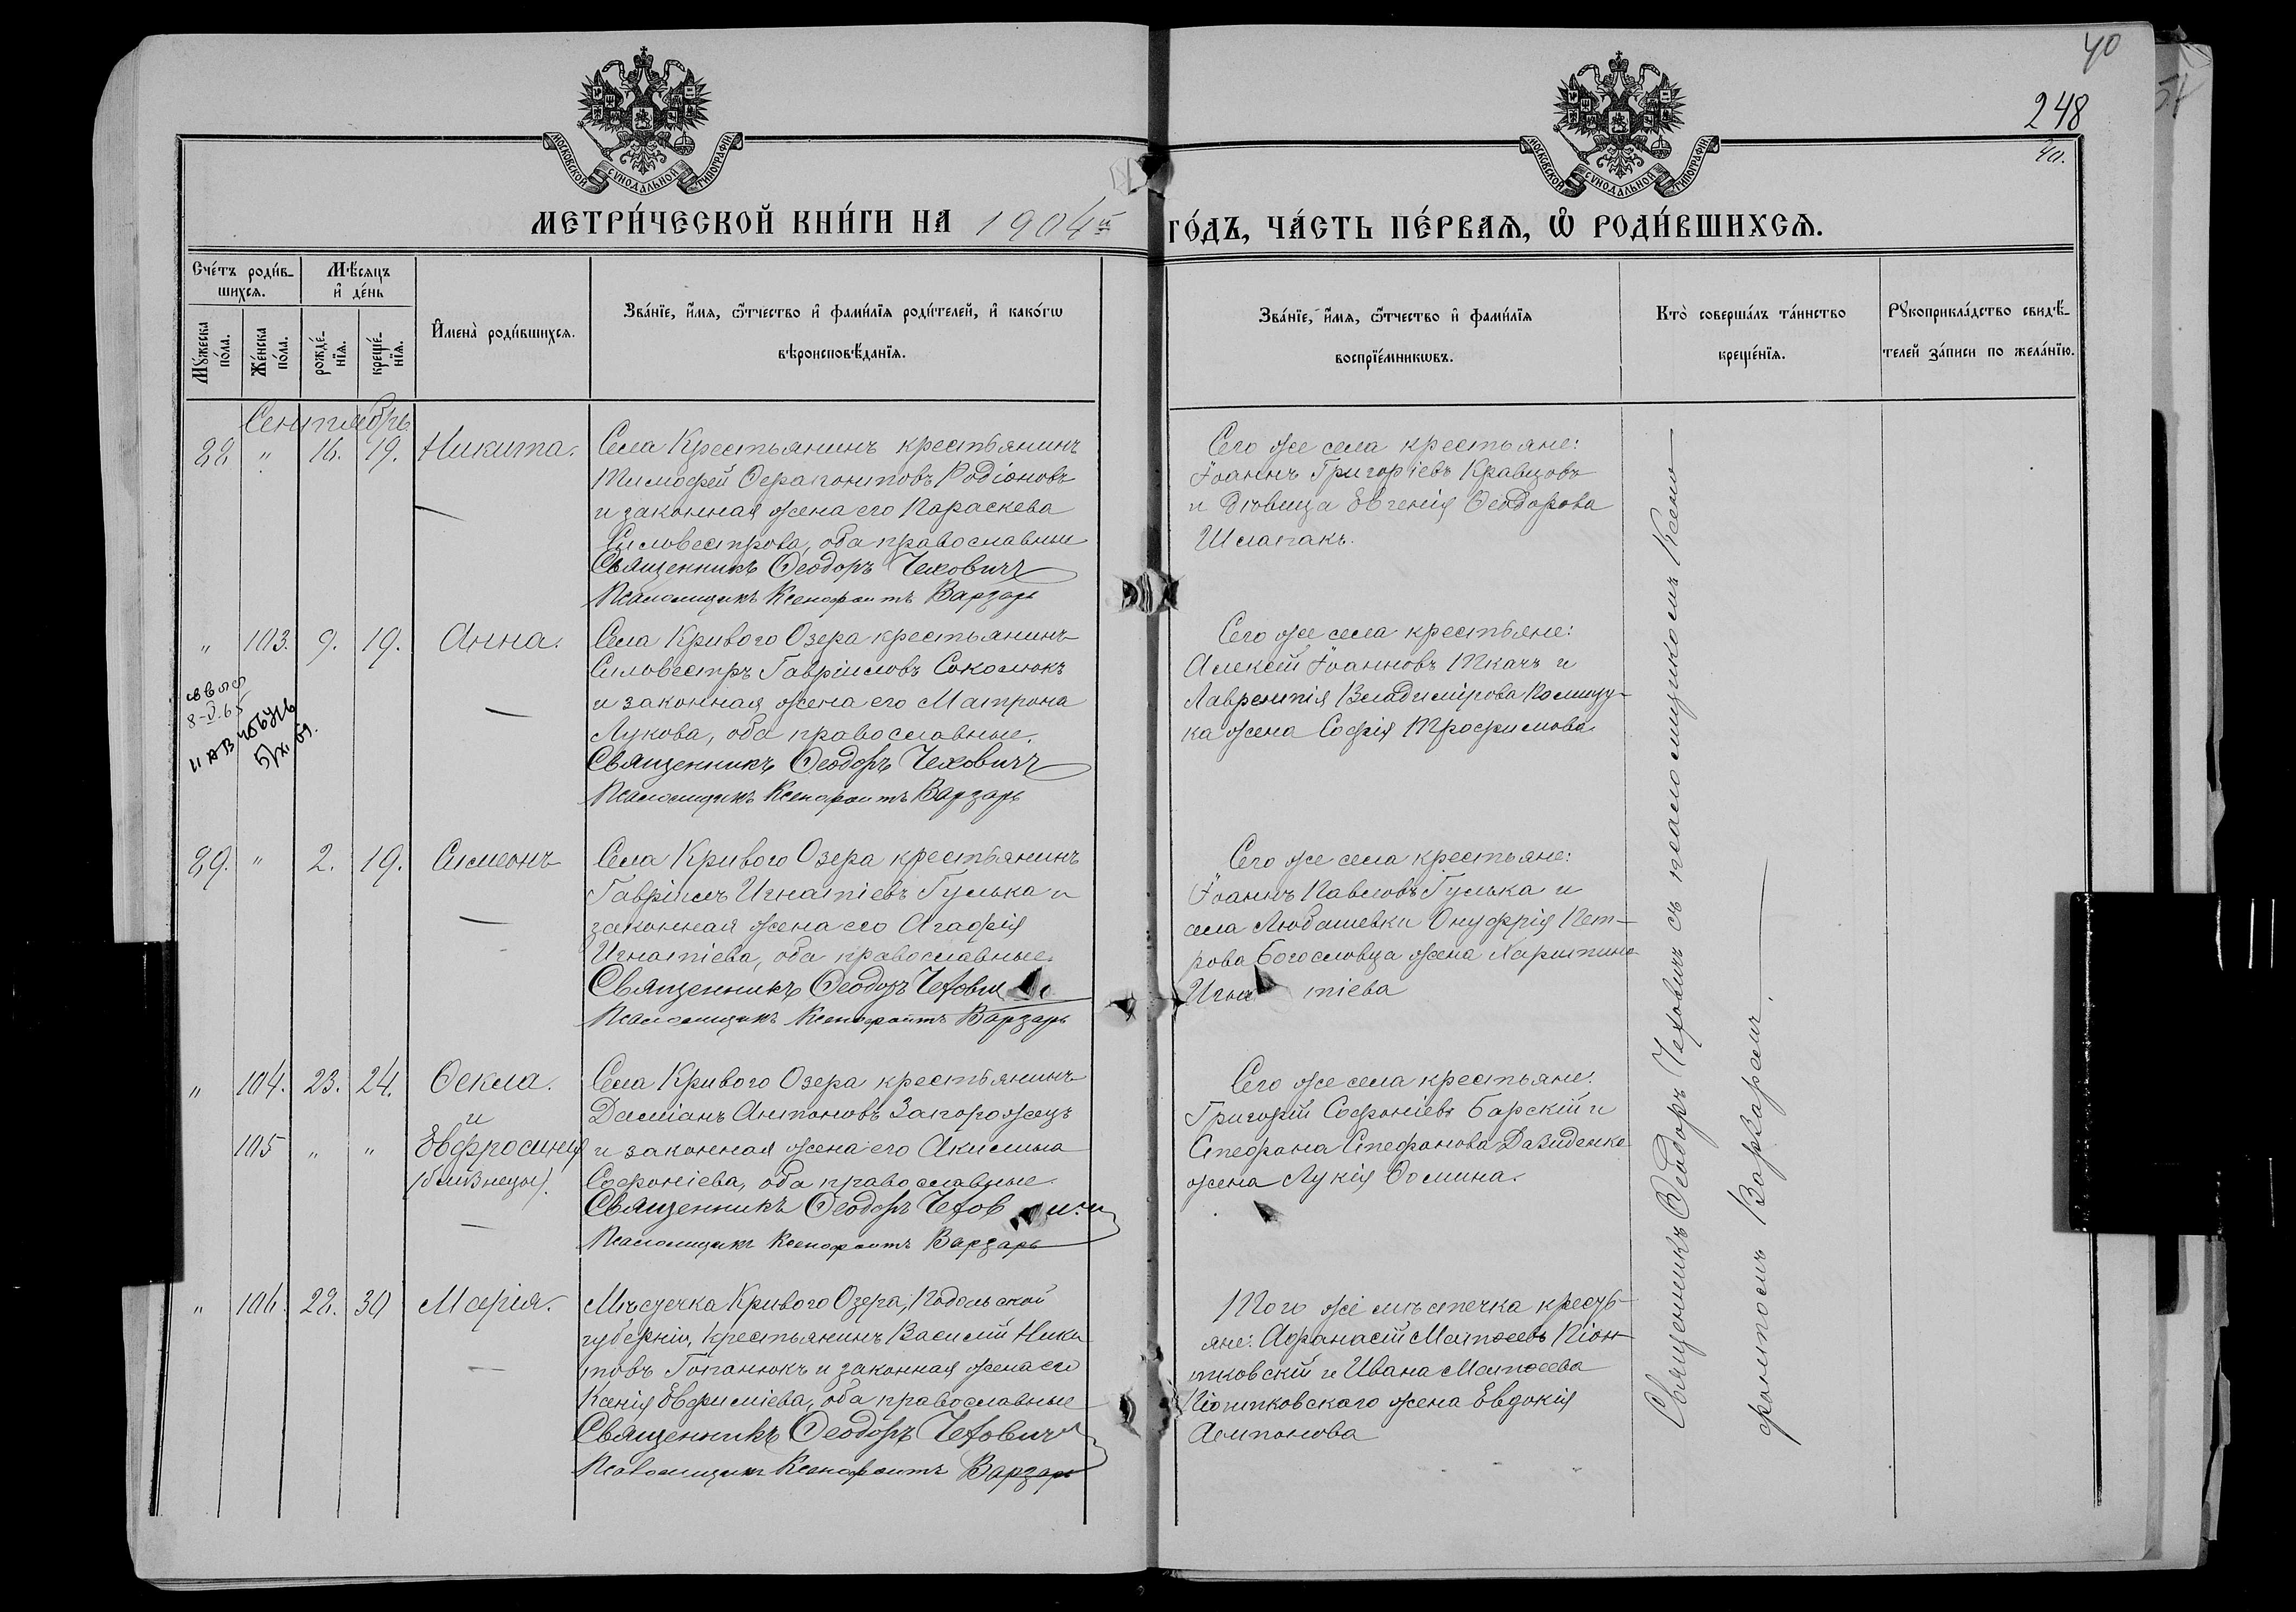 40
248
40.
МОСКОВСКОЙ СѴНОДАЛЬНОЙ ТИПОГРАФІИ
МОСКОВСКОЙ СѴНОДАЛЬНОЙ ТИПОГРАФІИ
МЕТРИ́ЧЕСКОЙ КНИ́ГИ НА 1904й ГО́ДЪ, ЧА́СТЬ ПЕ́РВАѦ, Ѽ РОДИ́ВШИХСѦ.
Сче́тъ роди́в-
шихсѧ.
Мѣ́сяцъ
и҆ де́нь
Мꙋ́жеска
по́ла.
Же́нска
по́ла.
рожде́-
нїѧ.
креще́-
нїѧ.
И҆мена̀ роди́вшихсѧ.
Зва́нїе, и҆́мѧ, ѻ҆́тчество и҆ фами́лїѧ роди́телей, и҆ како́гѡ
вѣроисповѣ́данїѧ.
Зва́нїе, и҆́мѧ, ѻ҆́тчество и҆ фами́лїѧ
воспрїе́мникѡвъ.
Кто̀ соверша́лъ та́инство
креще́нїѧ.
Рꙋкоприкла́дство свидѣ́-
телей за́писи по жела́нїю.
Сентябрь
88 " 16. 19. Никита.
Села Крестьянинъ крестьянинъ
Тимофей Ѳерапонтовъ Родіоновъ
и законная жена его Параскева
Сильвестрова, оба православные
Священникъ Ѳеодоръ Чехович
Псаломщикъ Ксенофонтъ Варзарь
Сего же села крестьяне:
Іоаннъ Григоріевъ Кравцовъ
и дѣвица Евгенія Ѳеодорова
Шлапакъ.
" 103. 9. 19. Анна.
8-V.65
Села Кривого Озера крестьянинъ
Сильвестръ Гавріиловъ Соколюкъ
и законная жена его Матрона
Лукова, оба православные.
Священникъ Ѳеодоръ Чехович
Псаломщикъ Ксенофонтъ Варзарь
Сего же села крестьяне:
Алексѣй Іоанновъ Ткачъ и
Лаврентія Владимірова Полищу-
ка жена Софія Трофимова.
89. " 2. 19. Симеонъ
Села Кривого Озера крестьянинъ
Гавріилъ Игнатіевъ Гулька и
законная жена его Агафія
Игнатіева, оба православные.
Священникъ Ѳеодоръ Чехови
Псаломщикъ Ксенофонтъ Варзарь
Сего же села крестьяне:
Іоаннъ Павловъ Гулька и
села Любашевки Онуфрія Пет-
рова Богословца жена Харитина
Игна тіева
" 104. 23. 24. Ѳекла.
и
105 " " Евфросинія
(близнецы).
Села Кривого Озера крестьянинъ
Даміанъ Антоновъ Запорожецъ
и законная жена его Акилина
Софоніева, оба православные.
Священникъ Ѳеодоръ Чехов ичъ
Псаломщикъ Ксенофонтъ Варзарь
Сего же села крестьяне:
Григорій Софоніевъ Барскій и
Стефана Стефанова Давиденко
жена Лукія Ѳомина.
" 106. 28. 30 Марія.
Мѣстечка Кривого Озера, Подольской
губерніи, крестьянинъ Василій Ники
товъ Гопанюкъ и законная жена его
Ксенія Евфиміева, оба православные
Священникъ Ѳеодоръ Чехович
Псаломщикъ Ксенофонтъ Варзарь
Того же мѣстечка кресть-
яне: Афанасій Матѳеевъ Піон-
тковскій и Ивана Матѳеева
Піонтковскаго жена Евдокія
Антонова
Священникъ Ѳеодоръ Чеховичъ съ псаломщикомъ Ксено-
фонтомъ Варзаремъ.